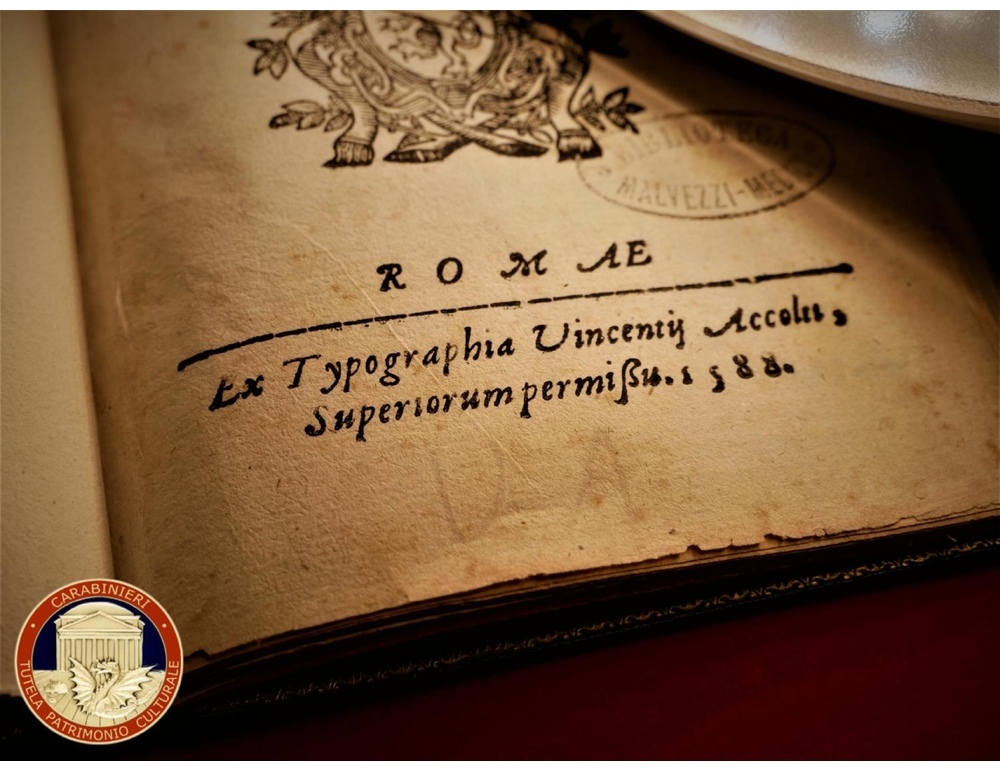 BIBLIOTECA
MALVEZZI-
ROMAE
Ex Typographia Vincentij Accolti,
Superiorum permißu. 1588.
CARABINIERI
TUTELA PATRIMONIO CULTURALE